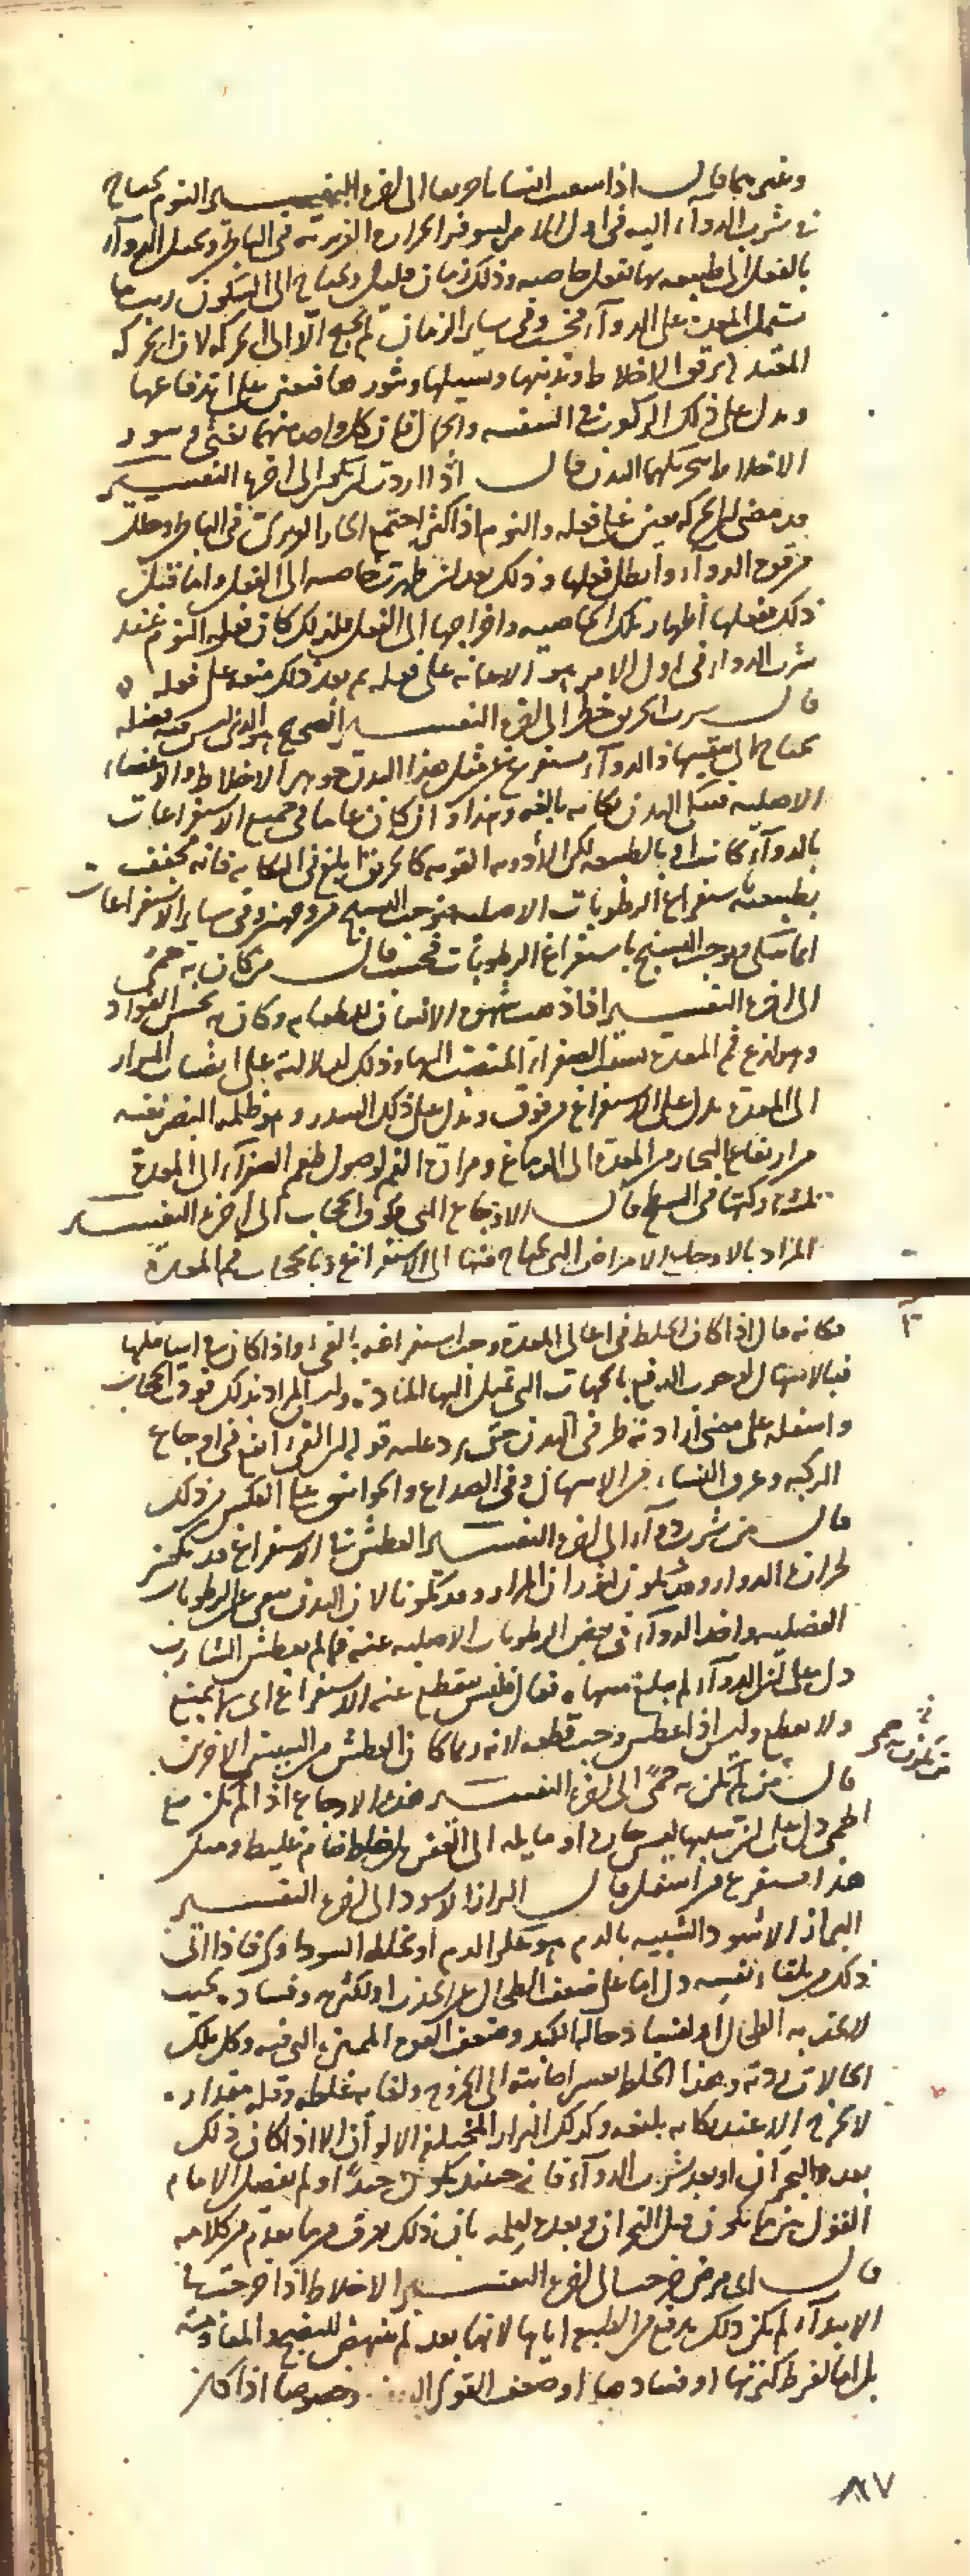 وغيرهما قال اذا سقيت انسانا خربقا الى اخره التفسير النوم يحتاج
في شرب الدواء اليه في اول الامر ليتوفر الحرارة الغريزية في الباطن وتحيل الدواء
بالفعل الى طبيعته بها تفعل خاصيته وذلك زمان قليل ويحتاج الى السكون ريث ما
تشتمل المعدة على الدواء فحسب وفي ساير الزمان لم يحتج الا الى الحركة لان الحركة
المعتدلة ترقق الاخلاط وتذيبها وتسيلها وتثورها فتعين على اندفاعها
ويدل على ذلك الركوب في السفينة والحال فان كل واحد منهما يغثي ويثور
الاخلاط بتحريكهما البدن قال اذا اردت ان يكون الى اخره التفسير
قد مضى ان الحركة تعين على فعله والنوم اذا كثر اجتمع الحار الغريزي في الباطن وحلل
من قوة الدواء وابطل فعلها وذلك بعد ان ظهرت خاصيته الى الفعل واما قبل
ذلك ففعلها اظهار تلك الخاصية واخراجها الى الفعل فلذلك كان فعل النوم عند
شرب الدواء في اول الامر هو الاعانة على فعله ثم بعد ذلك منعه عن فعله
قال شرب الخربق خطر الى اخره التفسير الصحيح هو الذي ليس فيه فضلة
يحتاج الى تنقيتها والدواء يستفرغ عن مثل هذا البدن جوهر الاخلاط والاعضاء
الاصلية فينكي البدن نكاية بالغة وهذا وان كان عاما في جميع الاستفراغات
بالدواء كائنا او بالطبيعة لكن الادوية القوية كالخربق ابلغ في النكاية فانه يجفف
بطبيعته باستفراغ الرطوبات الاصلية فيوجب التشنج من وجهين وفي ساير الاستفراغات
انما ينكي ويوجب التشنج باستفراغ الرطوبات فحسب قال من كان به حمى
الى اخره التفسير اذا ذهبت شهوة الانسان للطعام وكان به نخس الفواد
وهو لذع فم المعدة بسبب الصفراء المنصبة اليها وذلك لدلالته على انصباب المرار
الى المعدة يدل على الاستفراغ من فوق ويدل على ذلك السدر وهو ظلمة البصر بغتة
من ارتفاع البخار من المعدة الى الدماغ ومرارة الفم لوصول طعم الصفراء الى المعدة
لمشاركتها في السطح قال الاوجاع التي فوق الحجاب الى اخره التفسير
المراد بالاوجاع الامراض التي يحتاج فيها الى الاستفراغ وبالحجاب فم المعدة
فكانه قال اذا كان الخلط في اعالي المعدة وجب استفراغه بالقيء واذا كان في اسافلها
فبالاسهال لوجوب الدفع بالجهات التي تميل اليها المادة وليس المراد بذلك فوق الحجاب
واسفله على معنى ارادته طرفي البدن حتى يرد عليه قوله ان القيء انفع في اوجاع
الركبة وعرق النساء من الاسهال وفي الصداع والخوانيق على العكس من ذلك
قال من شرب دواء الى اخره التفسير العطش في الاستفراغ قد يكون
لحرارة الدواء وقد يكون لحرارة المرار وقد يكون لان البدن نقي عن الرطوبات
الفضلية واخذ الدواء في نفض الرطوبات الاصلية عنه فما لم يعطش الشارب
دل على ان الدواء لم يبلغ منتهاه فقال فليس ينقطع عنه الاستفراغ اي لا يمنع
ولا يقطع وليس اذا عطش وجب قطعه لانه ربما كان العطش من السببين الاخرين
قال من لم تكن به حمى الى اخره التفسير هذه الاوجاع اذا لم تكن مع
الحمى دل على ان سببها ليس حارا او مايلا الى العفن بل خلط خام غليظ ومثل
هذا يستفرغ من اسفل قال البراز الاسود الى اخره التفسير
البراز الاسود الشبيه بالدم هو عكر الدم او خلط السوداوي فاذا اتى
ذلك من تلقاء نفسه دل اما على ضعف الطحال عن الجذب او لكثرته وفساده بحيث
لا يجذبه الطحال او لفساد حال الكبد وضعف القوة المميزة التي فيه وكل تلك
الحالات ردية وهذا الخلط لعسر اجابته الى الخروج ولغاية غلظه وقلة مقداره
لا يخرج الا عند نكاية بليغة وكذلك البراز المختلف الالوان الا اذا كان ذلك
بعد البحران او بعد شرب الدواء فانه حينئذ يكون جيدا ولم يفصل الامام
القول بين ما يكون قبل البحران وبعده لعلمه بان ذلك يعرف مما تقدم من كلامه
قال اي مرض خرجت الى اخره التفسير الاخلاط اذا خرجت في
الابتداء لم يكن ذلك بدفع من الطبيعة اياها لانها بعد لم تنهض للنضج والمقاومة
بل اما لفرط كثرتها او فسادها او ضعف القوى البدنية وخصوصا اذا كان
٨٧